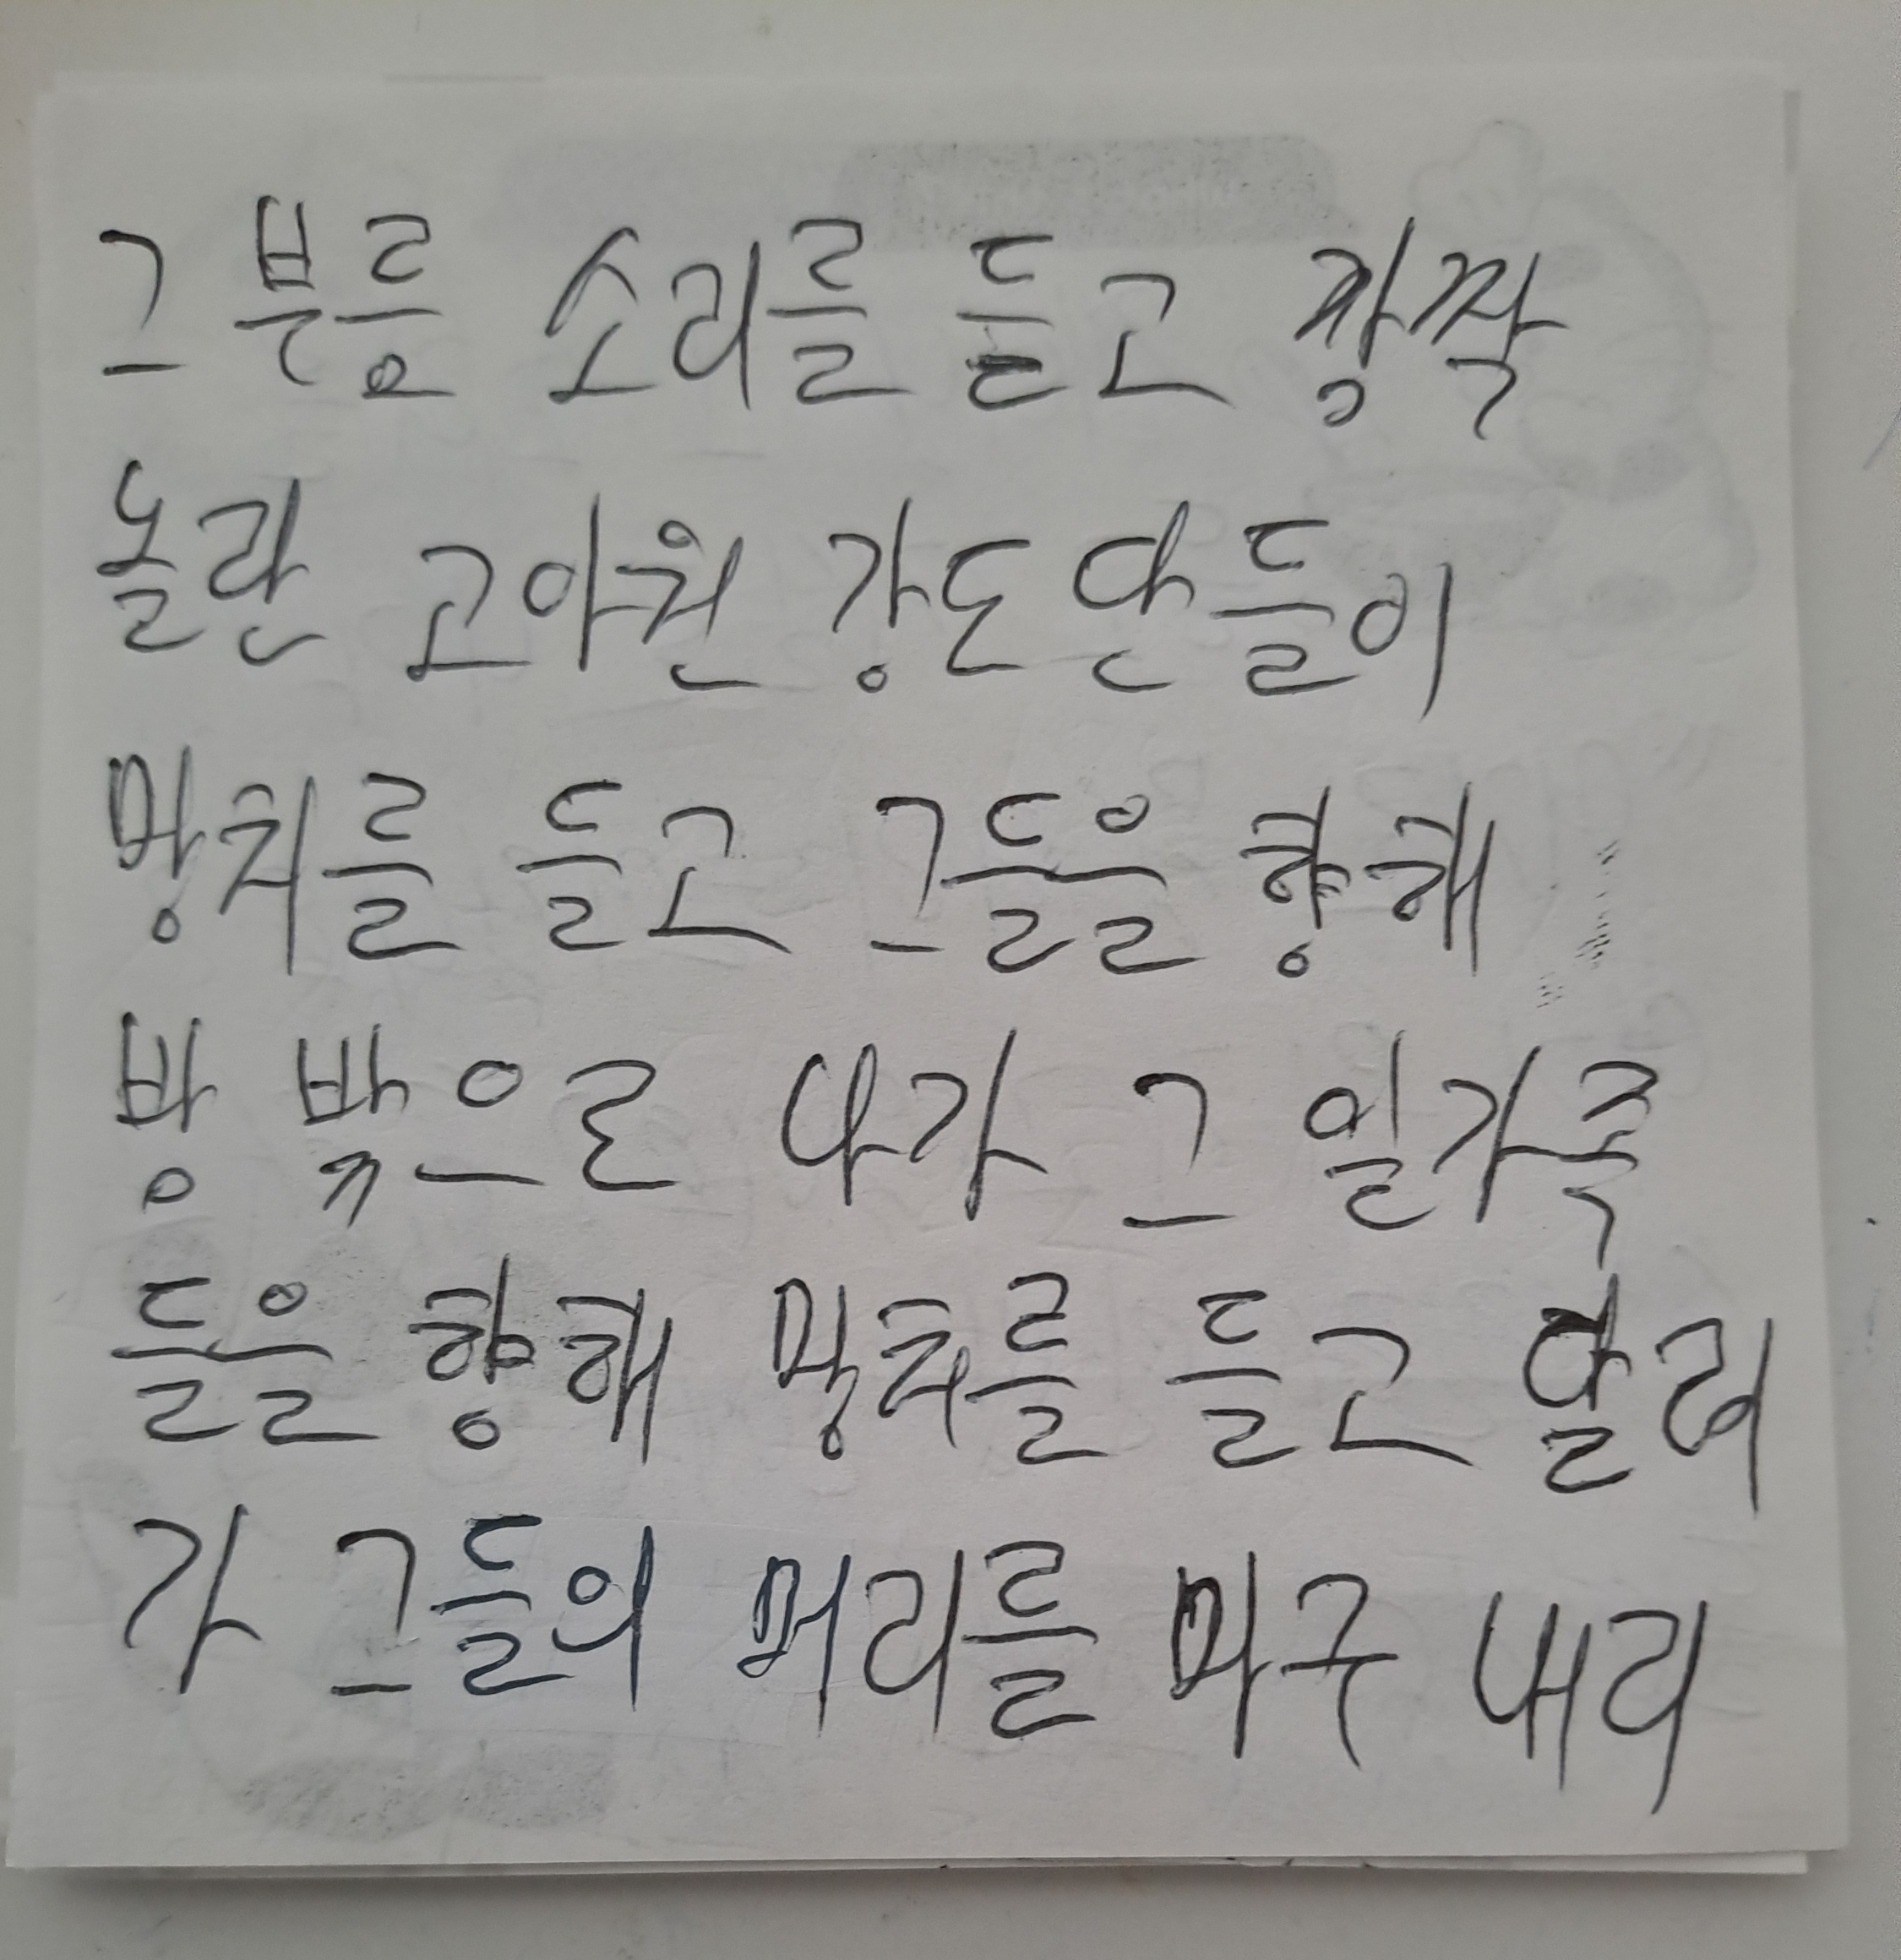 그 부름 소리를 듣고 깜짝
놀란 고아원 강도단들이
망치를 들고 그들을 향해
방 밖으로 나가 그 일가족
들을 향해 망치를 들고 달려
가 그들의 머리를 마구 내리